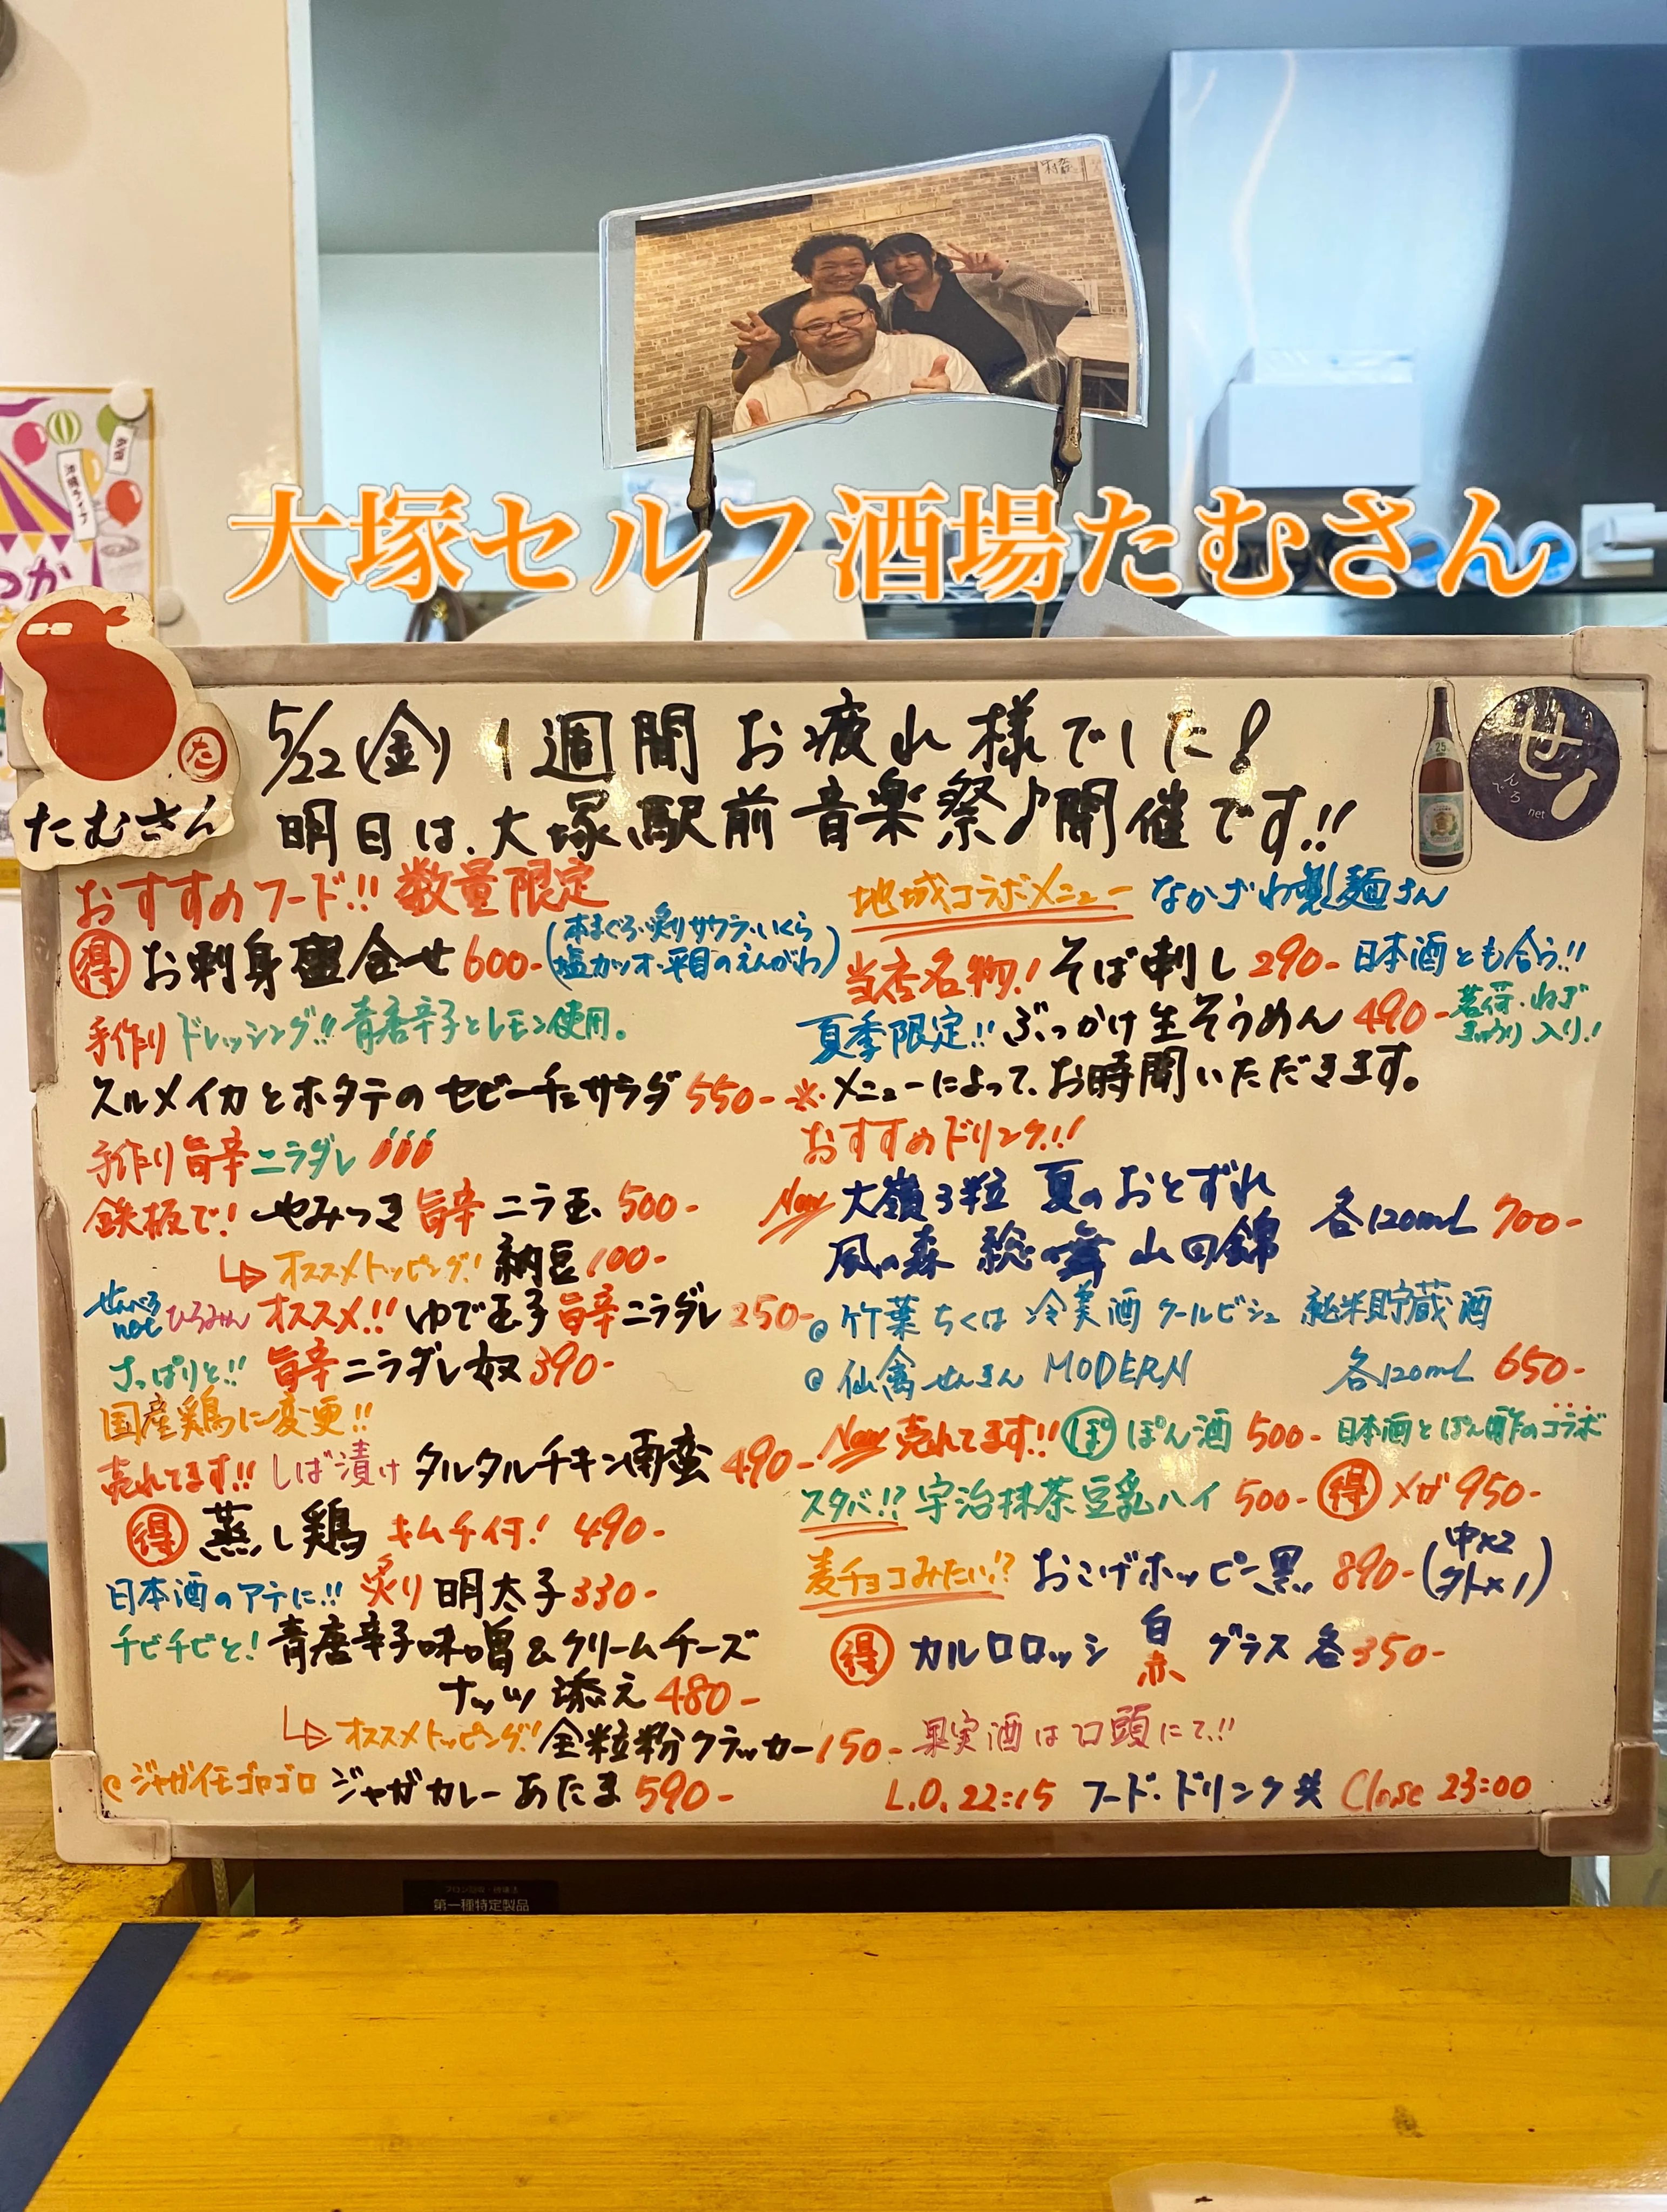 大塚セルフ酒場たむさん
た
たむさん
5/22(金) 1週間お疲れ様でした!
明日は、大塚駅前音楽祭♪開催です!!
せんべろ
net
25
おすすめフード!! 数量限定
得 お刺身盛合せ 600- (本まぐろ・炙りサワラ・いくら
塩カツオ・平目のえんがわ)
手作りドレッシング!! 青唐辛子とレモン使用。
スルメイカとホタテのセビーチェサラダ 550-
手作り旨辛ニラダレ
鉄板で! やみつき旨辛ニラ玉 500-
オススメトッピング! 納豆 100-
せんべろ
net ひろみん オススメ!! ゆで玉子旨辛ニラダレ 250-
さっぱりと!! 旨辛ニラダレ奴 390-
国産鶏に変更!!
売れてます!! しば漬け タルタルチキン南蛮 490-
得 蒸し鶏 キムチ付! 490-
日本酒のアテに!! 炙り明太子 330-
チビチビと! 青唐辛子味噌&クリームチーズ
ナッツ添え 480-
オススメトッピング! 全粒粉クラッカー 150-
ジャガイモゴロゴロ ジャガカレーあたま 590-
地域コラボメニュー なかざわ製麺さん
当店名物! そば刺し 290- 日本酒とも合う!!
夏季限定!! ぶっかけ生そうめん 490- 茗荷・ねぎ
きゅうり入り!
※メニューによって、お時間いただきます。
おすすめドリンク!!
New 大嶺3粒 夏のおとずれ
風の森 総舞 山田錦 各120mL 700-
竹葉 ちくは 冷美酒 クールビシュ 純米貯蔵酒
仙禽 せんきん MODERN 各120mL 650-
New 売れてます!! ぽ ぽん酒 500- 日本酒とぽん酢のコラボ
スタバ!? 宇治抹茶豆乳ハイ 500- 得 メガ 950-
麦チョコみたい!? おこげホッピー黒 890- (中×2
外×1)
得 カルロロッシ 白 赤 グラス 各350-
果実酒は口頭にて!!
L.O. 22:15 フード・ドリンク共 Close 23:00
第一種特定製品